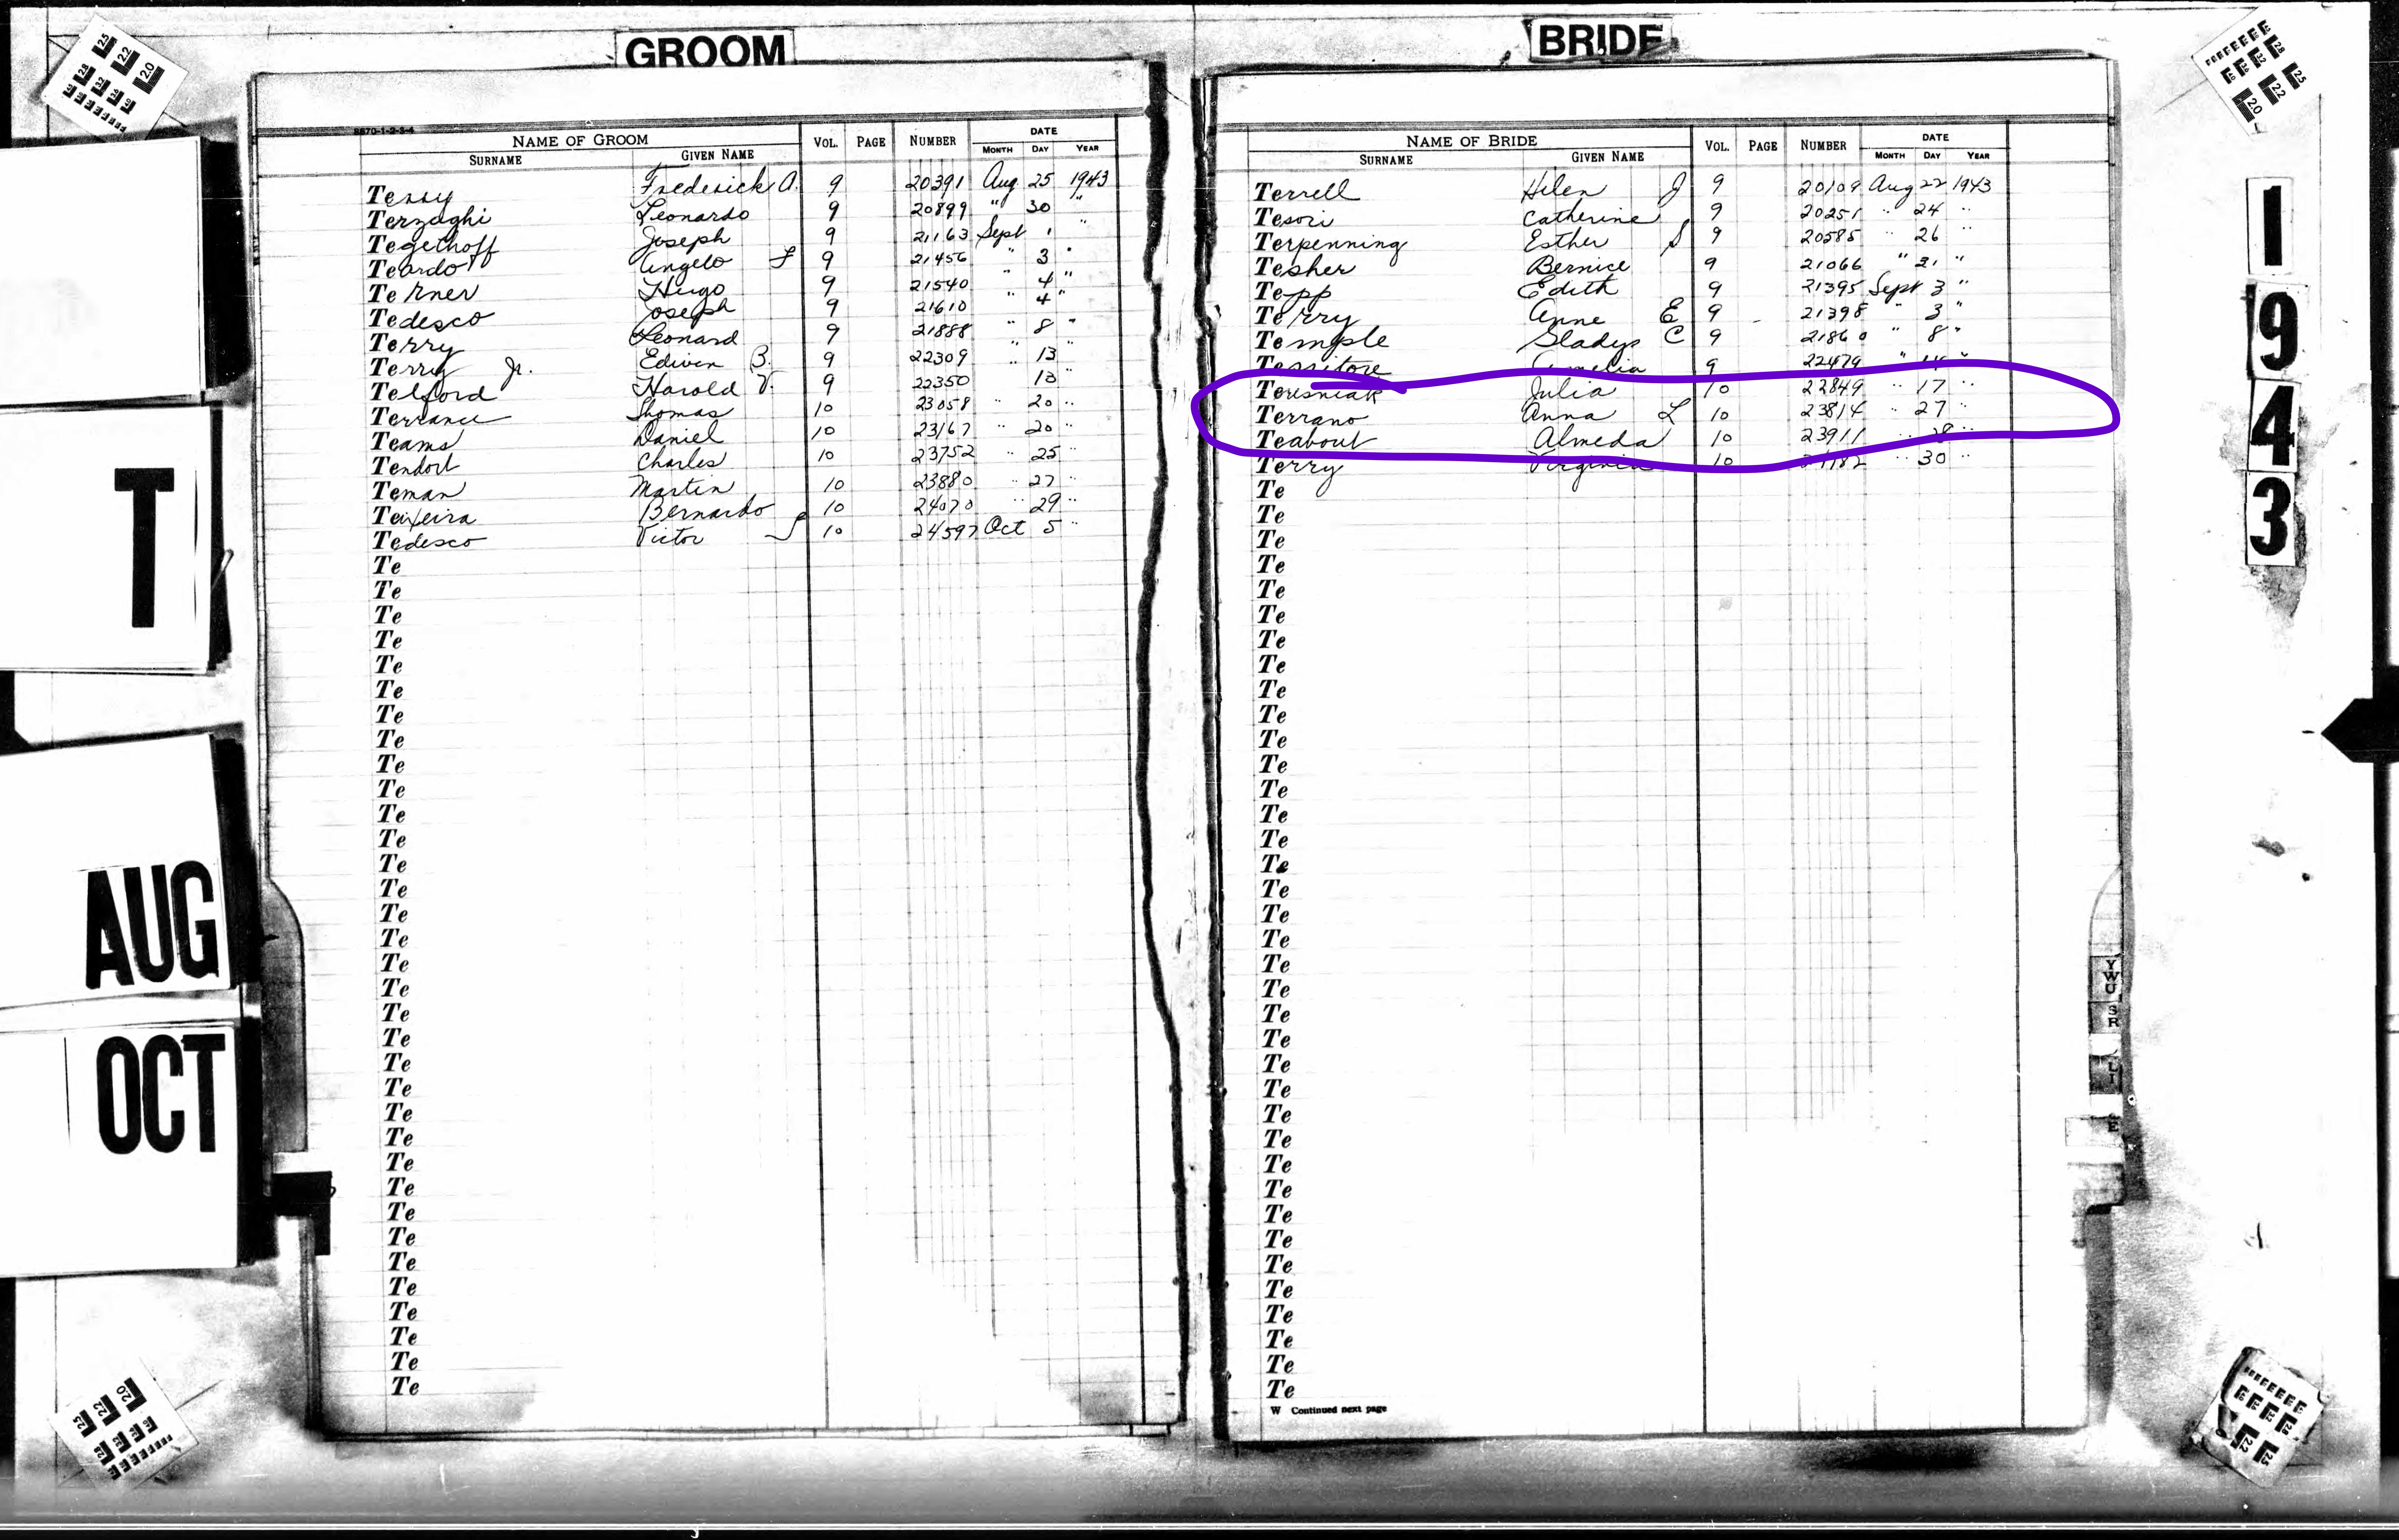 GROOM
BRIDE
8670-1-2-3-4
NAME OF GROOM VOL. PAGE NUMBER DATE
SURNAME GIVEN NAME MONTH DAY YEAR
Terry Frederick A. 9 20391 Aug 25 1943
Terzaghi Leonardo 9 20899 " 30 "
Tegethoff Joseph 9 21163 Sept 1 "
Teardo Angelo F 9 21456 " 3 "
Terner Hugo 9 21540 " 4 "
Tedesco Joseph 9 21610 " 4 "
Terry Leonard 9 21888 " 8 "
Terry Jr. Edwin B. 9 22309 " 13 "
Telford Harold V. 9 22350 13 "
Terrance Thomas 10 23058 " 20 "
Teams Daniel 10 23167 " 20 "
Tendort Charles 10 23752 " 25 "
Teman Martin 10 23880 " 27 "
Teixeira Bernardo 10 24070 " 29 "
Tedesco Victor J 10 24597 Oct 5 "
Te
Te
Te
Te
Te
Te
Te
Te
Te
Te
Te
Te
Te
Te
Te
Te
Te
Te
Te
Te
Te
Te
Te
Te
Te
Te
Te
Te
Te
Te
Te
Te
Te
Te
NAME OF BRIDE VOL. PAGE NUMBER DATE
SURNAME GIVEN NAME MONTH DAY YEAR
Terrell Helen J 9 20109 Aug 22 1943
Tesori Catherine 9 20251 " 24 "
Terpenning Esther S 9 20585 " 26 "
Tesher Bernice 9 21066 " 31 "
Tepp Edith 9 21395 Sept 3 "
Terry Anne E 9 21398 " 3 "
Temple Gladys C 9 21860 " 8 "
Territore 9 22479 " 14 "
Teresniak Julia 10 22849 " 17 "
Terrano Anna L 10 23814 " 27 "
Teabout Almeda 10 23911 " 28 "
Terry Virginia 10 " 30 "
Te
Te
Te
Te
Te
Te
Te
Te
Te
Te
Te
Te
Te
Te
Te
Te
Te
Te
Te
Te
Te
Te
Te
Te
Te
Te
Te
Te
Te
Te
Te
Te
Te
Te
Te
Te
Te
W Continued next page
T
AUG
OCT
1
9
4
3